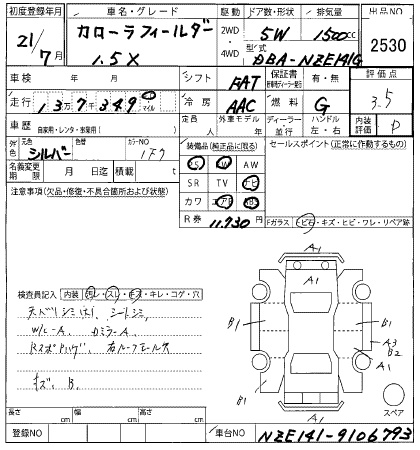 初度登録年月 車名・グレード 駆動 ドア数・形状 排気量 出品NO
21/7月 カローラフィールダー 1.5X 2WD 4WD 5W 1500cc 2530
型式 DBA-NZE141G
車検 年 月 シフト FAT 保証書 有・無 評価点
走行 137349 マイル 冷房 AAC 燃料 G 3.5
車歴 自家用・レンタ・事業用 定員 人 外車モデル 年 ディーラー 並行 ハンドル 左・右 内装評価 D
外色 元色 シルバー 色替 カラーNO 1F7 装備品(純正品に限る) セールスポイント(正常に作動するもの)
名義変更期限 月 日迄 積載 t
PS PW AW
SR TV ナビ
カワ エアB ABS
R券 11,730円
注意事項(欠品・修復・不具合箇所および状態)
Fガラス トビ石・キズ・ヒビ・ワレ・リペア跡
検査員記入 内装 ヨゴレ・スレ・キズ・キレ・コゲ・穴
天バリシミ(大)、シートシミ
W/L-A カミラーA
Rスポットハゲ、右ルーフモール欠
キズ、B.
A1
A1
B1
B1
A3
B2
A1
B1
A1
スペア
長さ cm 幅 cm 高さ cm
登録NO 車台NO NZE141-9106793